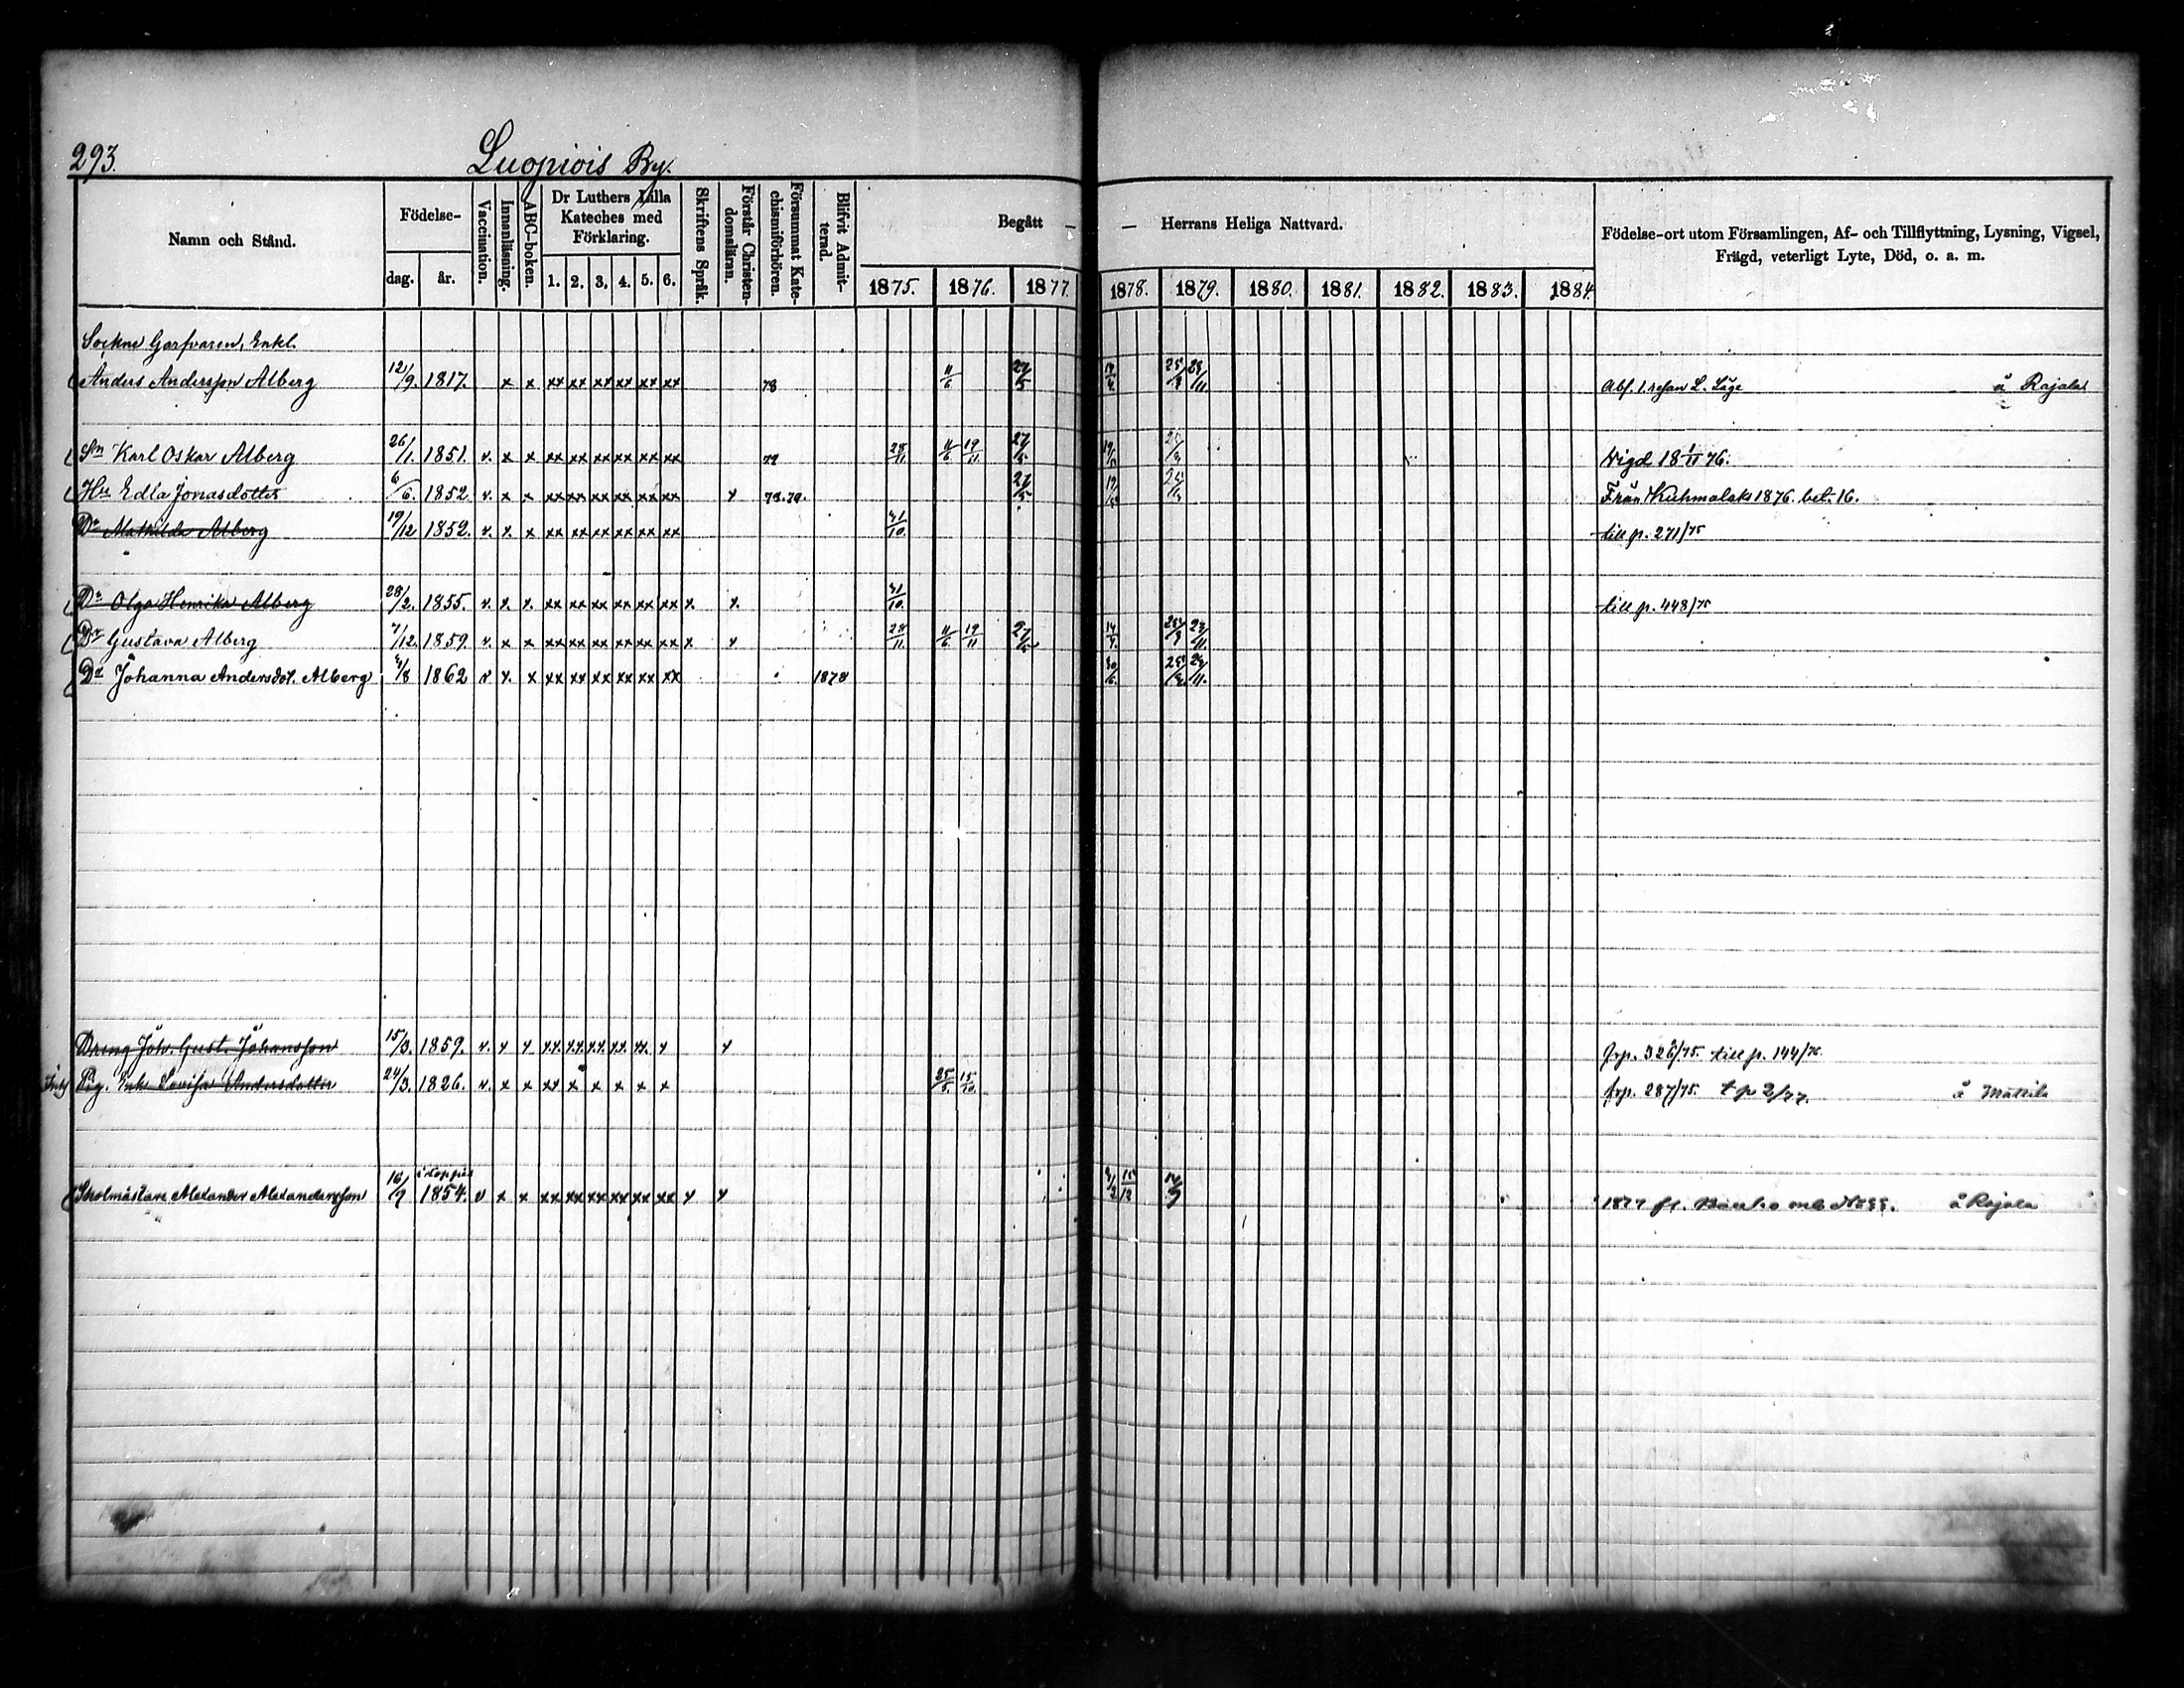 293.
Luopiois By.
Namn och Stånd.
Födelse-
dag. år.
Vaccination.
Innanläsning.
ABC-boken.
Dr Luthers Lilla
Kateches med
Förklaring.
1. 2. 3. 4. 5. 6.
Skriftens Språk.
Förstår Christen-
domsläran.
Försummat Kate-
chismiförhören.
Blifvit Admit-
terad.
Begått —
— Herrans Heliga Nattvard.
1875. 1876. 1877.
1878. 1879. 1880. 1881. 1882. 1883. 1884.
Födelse-ort utom Församlingen, Af- och Tillflyttning, Lysning, Vigsel,
Frägd, veterligt Lyte, Död, o. a. m.
Sockne Garfvaren, Enkl.
Anders Andersson Alberg 12/9. 1817. x x xx xx xx xx xx xx 78 11/6 27/5 14/4 å Rajala
Sn Karl Oskar Alberg 26/1. 1851. v. x x xx xx xx xx xx xx 28/11 11/6 19/11 27/5 Vigd 18 1/11 76.
Hu Edla Jonasdotter 6/6. 1852 v. x x xx xx xx xx xx xx x 78.79. 27/5 Från Kuhmalaks 1876. bet. 16.
Dr Mathilda Alberg 19/12 1852. v. x. x xx xx xx xx xx xx 31/10. till p. 271/75
Dr Olga Henrika Alberg 28/2. 1855. v. x. x. xx xx xx xx xx xx x. x. 31/10. till p. 448/75
Dr Gustava Alberg 7/12. 1859. v. x x xx xx xx xx xx xx x x 28/11. 11/6 19/11 27/5 14/4.
Dr Johanna Andersdot. Alberg 1862 v x. x xx xx xx xx xx xx 1878 30/6.
Dreng Joh. Gust. Johansson 15/3. 1859. v. x x xx xx xx xx xx x x frp. 326/75. till p. 144/76.
Pig. Enk Lovisa Andersdotter 24/3. 1826. v. x x xx x x x x x 25/5. 15/10. frp. 287/75. t p 2/77. å Mattila
i Loppis
Skolmästare Alexander Alexandersson 16/9 1854. v x x xx xx xx xx xx xx x x 1877 fr. å Rajala